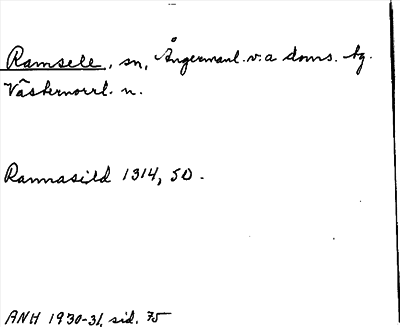 Ramsele, sn, Ångermanl. v:a doms. hg.
Västernorrl. n.
Ramnasild 1314, SD.
ANH 1930-31, sid. 75